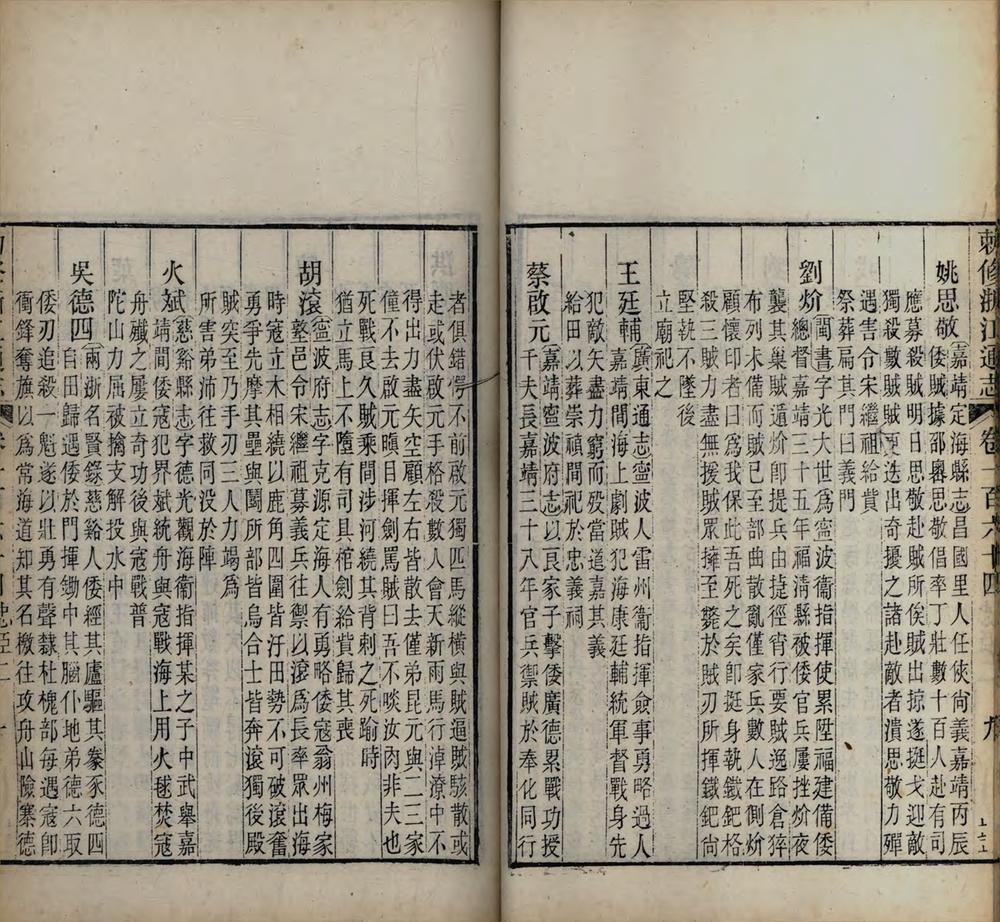 敕修浙江通志 卷一百六十四 九
姚思敬 嘉靖定海縣志昌國里人任俠尙義嘉靖丙辰
倭賊據邵嶴思敬倡率丁壯數十百人赴有司
應募殺賊明日思敬赴賊所俟賊出掠遂挺戈迎敵
獨殺數賊賊更迭出奇擾之諸赴敵者潰思敬力殫
遇害令宋繼祖給貲
祭葬扁其門曰義門
劉炌 閩書字光大世爲寧波衞指揮使累陞福建備倭
總督嘉靖三十五年福淸縣被倭官兵屢挫炌夜
襲其巢賊遁炌卽提兵由捷徑宵行要賊逸路倉猝
布列未備而賊已至部曲散亂僅家兵數人在側炌
顧懷印者曰爲我保此吾死之矣卽挺身執鐵鈀格
殺三賊力盡無援賊眾擁至斃於賊刃所揮鐵鈀尙
堅執不墜後
立廟祀之
王廷輔 廣東通志寧波人雷州衞指揮僉事勇略過人
嘉靖間海上劇賊犯海康廷輔統軍督戰身先
犯敵矢盡力窮而歿當道嘉其義
給田以葬崇禎間祀於忠義祠
蔡啟元 嘉靖寧波府志以良家子擊倭廣德累戰功授
千夫長嘉靖三十八年官兵禦賊於奉化同行
者俱錯愕不前啟元獨匹馬縱橫與賊逼賊駭散或
走或伏啟元手格殺數人會天新雨馬行淖潦中不
得出力盡矢空顧左右皆散去僅弟昆元與二三家
僮不去啟元瞋目揮劍罵賊曰吾不啖汝肉非夫也
死戰良久賊乘間涉河繞其背刺之死踰時
猶立馬上不墮有司具棺劍給貲歸其喪
胡滾 寧波府志字克源定海人有勇略倭寇翁州梅家
墪邑令宋繼祖募義兵往禦以滾爲長率眾出海
時寇立木相繞以鹿角四圍皆汙田勢不可破滾奮
勇爭先摩其壘與鬬所部皆烏合士皆奔滾獨後殿
賊突至乃手刃三人力竭爲
所害弟沛往救同没於陣
火斌 慈谿縣志字德光觀海衞指揮某之子中武舉嘉
靖間倭寇犯界斌統舟與寇戰海上用火毬焚寇
舟殲之屢立奇功後與寇戰普
陀山力屈被擒支解投水中
吳德四 兩浙名賢錄慈谿人倭經其廬驅其豢豕德四
自田歸遇倭於門揮鋤中其腦仆地弟德六取
倭刃追殺一魁遂以壯勇有聲隸杜槐部每遇寇卽
衝鋒奪旗以爲常海道知其名檄往攻舟山險寨德